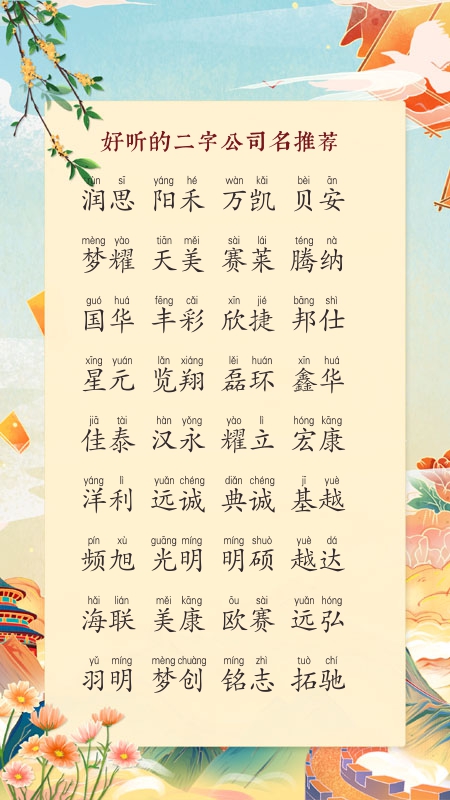 好听的二字公司名推荐
rùn sī yáng hé wàn kǎi bèi ān
润思 阳禾 万凯 贝安
mèng yào tiān měi sài lái téng nà
梦耀 天美 赛莱 腾纳
guó huá fēng cǎi xīn jié bāng shì
国华 丰彩 欣捷 邦仕
xīng yuán lǎn xiáng lěi huán xīn huá
星元 览翔 磊环 鑫华
jiā tài hàn yǒng yào lì hóng kāng
佳泰 汉永 耀立 宏康
yáng lì yuǎn chéng diǎn chéng jī yuè
洋利 远诚 典诚 基越
pín xù guāng míng míng shuò yuè dá
频旭 光明 明硕 越达
hǎi lián měi kāng ōu sài yuǎn hóng
海联 美康 欧赛 远弘
yǔ míng mèng chuàng míng zhì tuò chí
羽明 梦创 铭志 拓驰